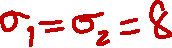 σ₁=σ₂=8